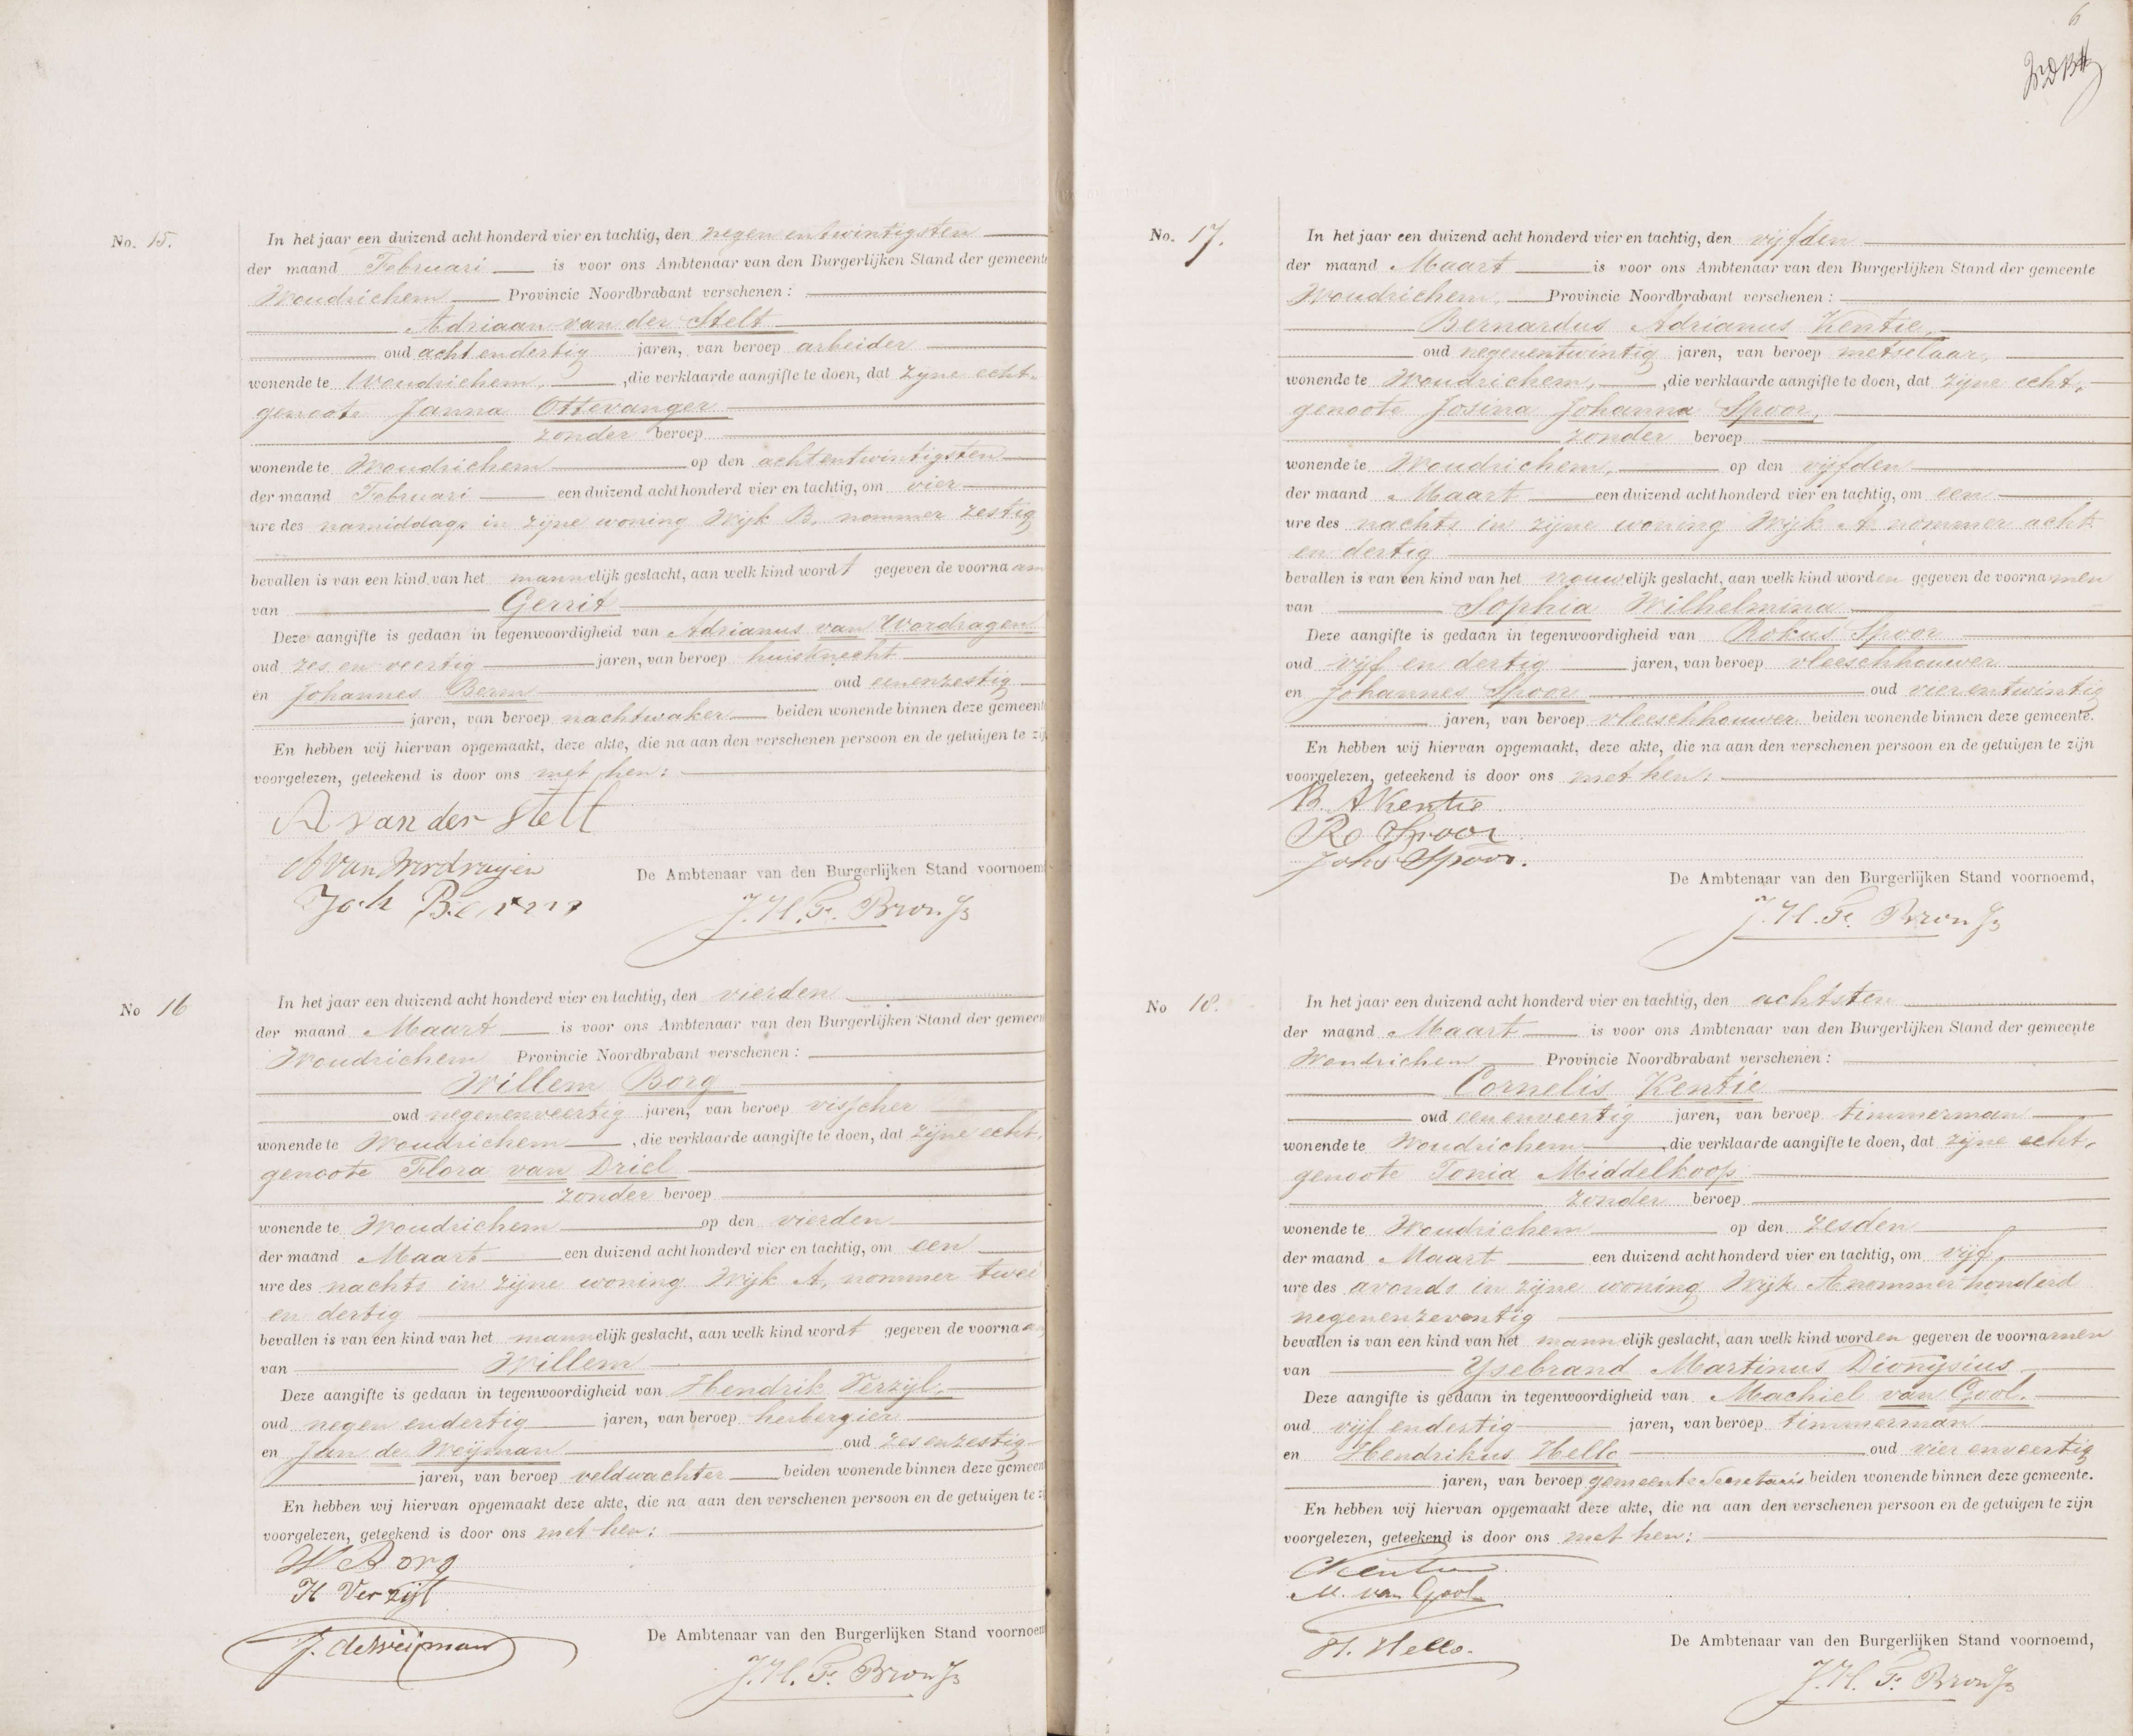 No. 15.
In het jaar een duizend acht honderd vier en tachtig, den negen entwintigsten
der maand Februari is voor ons Ambtenaar van den Burgerlijken Stand der gemeente
Woudrichem Provincie Noordbrabant verschenen:
Adriaan van der Stelt
oud acht endertig jaren, van beroep arbeider
wonende te Woudrichem, ,die verklaarde aangifte te doen, dat zijne echt-
genoote Janna Ottevanger
zonder beroep
wonende te Woudrichem op den achtentwintigsten
der maand Februari een duizend acht honderd vier en tachtig, om vier
ure des namiddags in zijne woning Wijk B, nommer zestig
bevallen is van een kind van het mannelijk geslacht, aan welk kind wordt gegeven de voornaam
van Gerrit
Deze aangifte is gedaan in tegenwoordigheid van Adrianus van Wordragen
oud zes en veertig jaren, van beroep huisknecht
en Johannes Berm oud eenenzestig
jaren, van beroep nachtwaker beiden wonende binnen deze gemeent
En hebben wij hiervan opgemaakt, deze akte, die na aan den verschenen persoon en de getuigen te zij
voorgelezen, geteekend is door ons met hen:
A van der Stelt
A van Wordragen
De Ambtenaar van den Burgerlijken Stand voornoem
Joh Berm
J. H. F. Bron Jz
No 16
In het jaar een duizend acht honderd vier en tachtig, den vierden
der maand Maart is voor ons Ambtenaar van den Burgerlijken Stand der gemeen
Woudrichem Provincie Noordbrabant verschenen:
Willem Borg
oud negenenveertig jaren, van beroep visscher
wonende te Woudrichem , die verklaarde aangifte te doen, dat zijne echt-
genoote Flora van Driel
zonder beroep
wonende te Woudrichem op den vierden
der maand Maart een duizend acht honderd vier en tachtig, om een
ure des nachts in zijne woning Wijk A, nommer twee
en dertig
bevallen is van een kind van het mannelijk geslacht, aan welk kind wordt gegeven de voornaam
van Willem
Deze aangifte is gedaan in tegenwoordigheid van Hendrik Verzijl,
oud negen endertig jaren, van beroep herbergier
en Jan de Weijman oud zesenzestig
jaren, van beroep veldwachter beiden wonende binnen deze gemeen
En hebben wij hiervan opgemaakt deze akte, die na aan den verschenen persoon en de getuigen te zi
voorgelezen, geteekend is door ons met hen:
W Borg
H Verzijl
J. de Weijman
De Ambtenaar van den Burgerlijken Stand voornoem
J. H. F. Bron Jz
6
No. 17.
In het jaar een duizend acht honderd vier en tachtig, den vijfden
der maand Maart is voor ons Ambtenaar van den Burgerlijken Stand der gemeente
Woudrichem, Provincie Noordbrabant verschenen:
Bernardus Adrianus Kentie,
oud negenentwintig jaren, van beroep metselaar,
wonende te Woudrichem, ,die verklaarde aangifte te doen, dat zijne echt-
genoote Josina Johanna Spoor,
zonder beroep
wonende te Woudrichem, op den vijfden
der maand Maart een duizend acht honderd vier en tachtig, om een
ure des nachts in zijne woning Wijk A nommer acht
en dertig
bevallen is van een kind van het vrouwelijk geslacht, aan welk kind worden gegeven de voornamen
van Sophia Wilhelmina
Deze aangifte is gedaan in tegenwoordigheid van Rokus Spoor
oud vijf en dertig jaren, van beroep vleeschhouwer
en Johannes Spoor oud vierentwintig
jaren, van beroep vleeschhouwer beiden wonende binnen deze gemeente.
En hebben wij hiervan opgemaakt, deze akte, die na aan den verschenen persoon en de getuigen te zijn
voorgelezen, geteekend is door ons met hen:
B. A Kentie
R Spoor
Johs Spoor.
De Ambtenaar van den Burgerlijken Stand voornoemd,
J. H. F. Bron Jz
No 18.
In het jaar een duizend acht honderd vier en tachtig, den achtsten
der maand Maart is voor ons Ambtenaar van den Burgerlijken Stand der gemeente
Woudrichem Provincie Noordbrabant verschenen:
Cornelis Kentie
oud eenenveertig jaren, van beroep timmerman
wonende te Woudrichem ,die verklaarde aangifte te doen, dat zijne echt-
genoote Tonia Middelkoop
zonder beroep
wonende te Woudrichem op den zesden
der maand Maart een duizend acht honderd vier en tachtig, om vijf,
ure des avonds in zijne woning Wijk A nommer honderd
negenenzeventig
bevallen is van een kind van het mannelijk geslacht, aan welk kind worden gegeven de voornamen
van Ysebrand Martinus Dionysius
Deze aangifte is gedaan in tegenwoordigheid van Machiel van Gool.
oud vijf endertig jaren, van beroep timmerman
en Hendrikus Hello oud vier enveertig
jaren, van beroep gemeente Secretaris beiden wonende binnen deze gemeente.
En hebben wij hiervan opgemaakt deze akte, die na aan den verschenen persoon en de getuigen te zijn
voorgelezen, geteekend is door ons met hen:
C Kentie
M. van Gool
H. Hello.
De Ambtenaar van den Burgerlijken Stand voornoemd,
J. H. F. Bron Jz